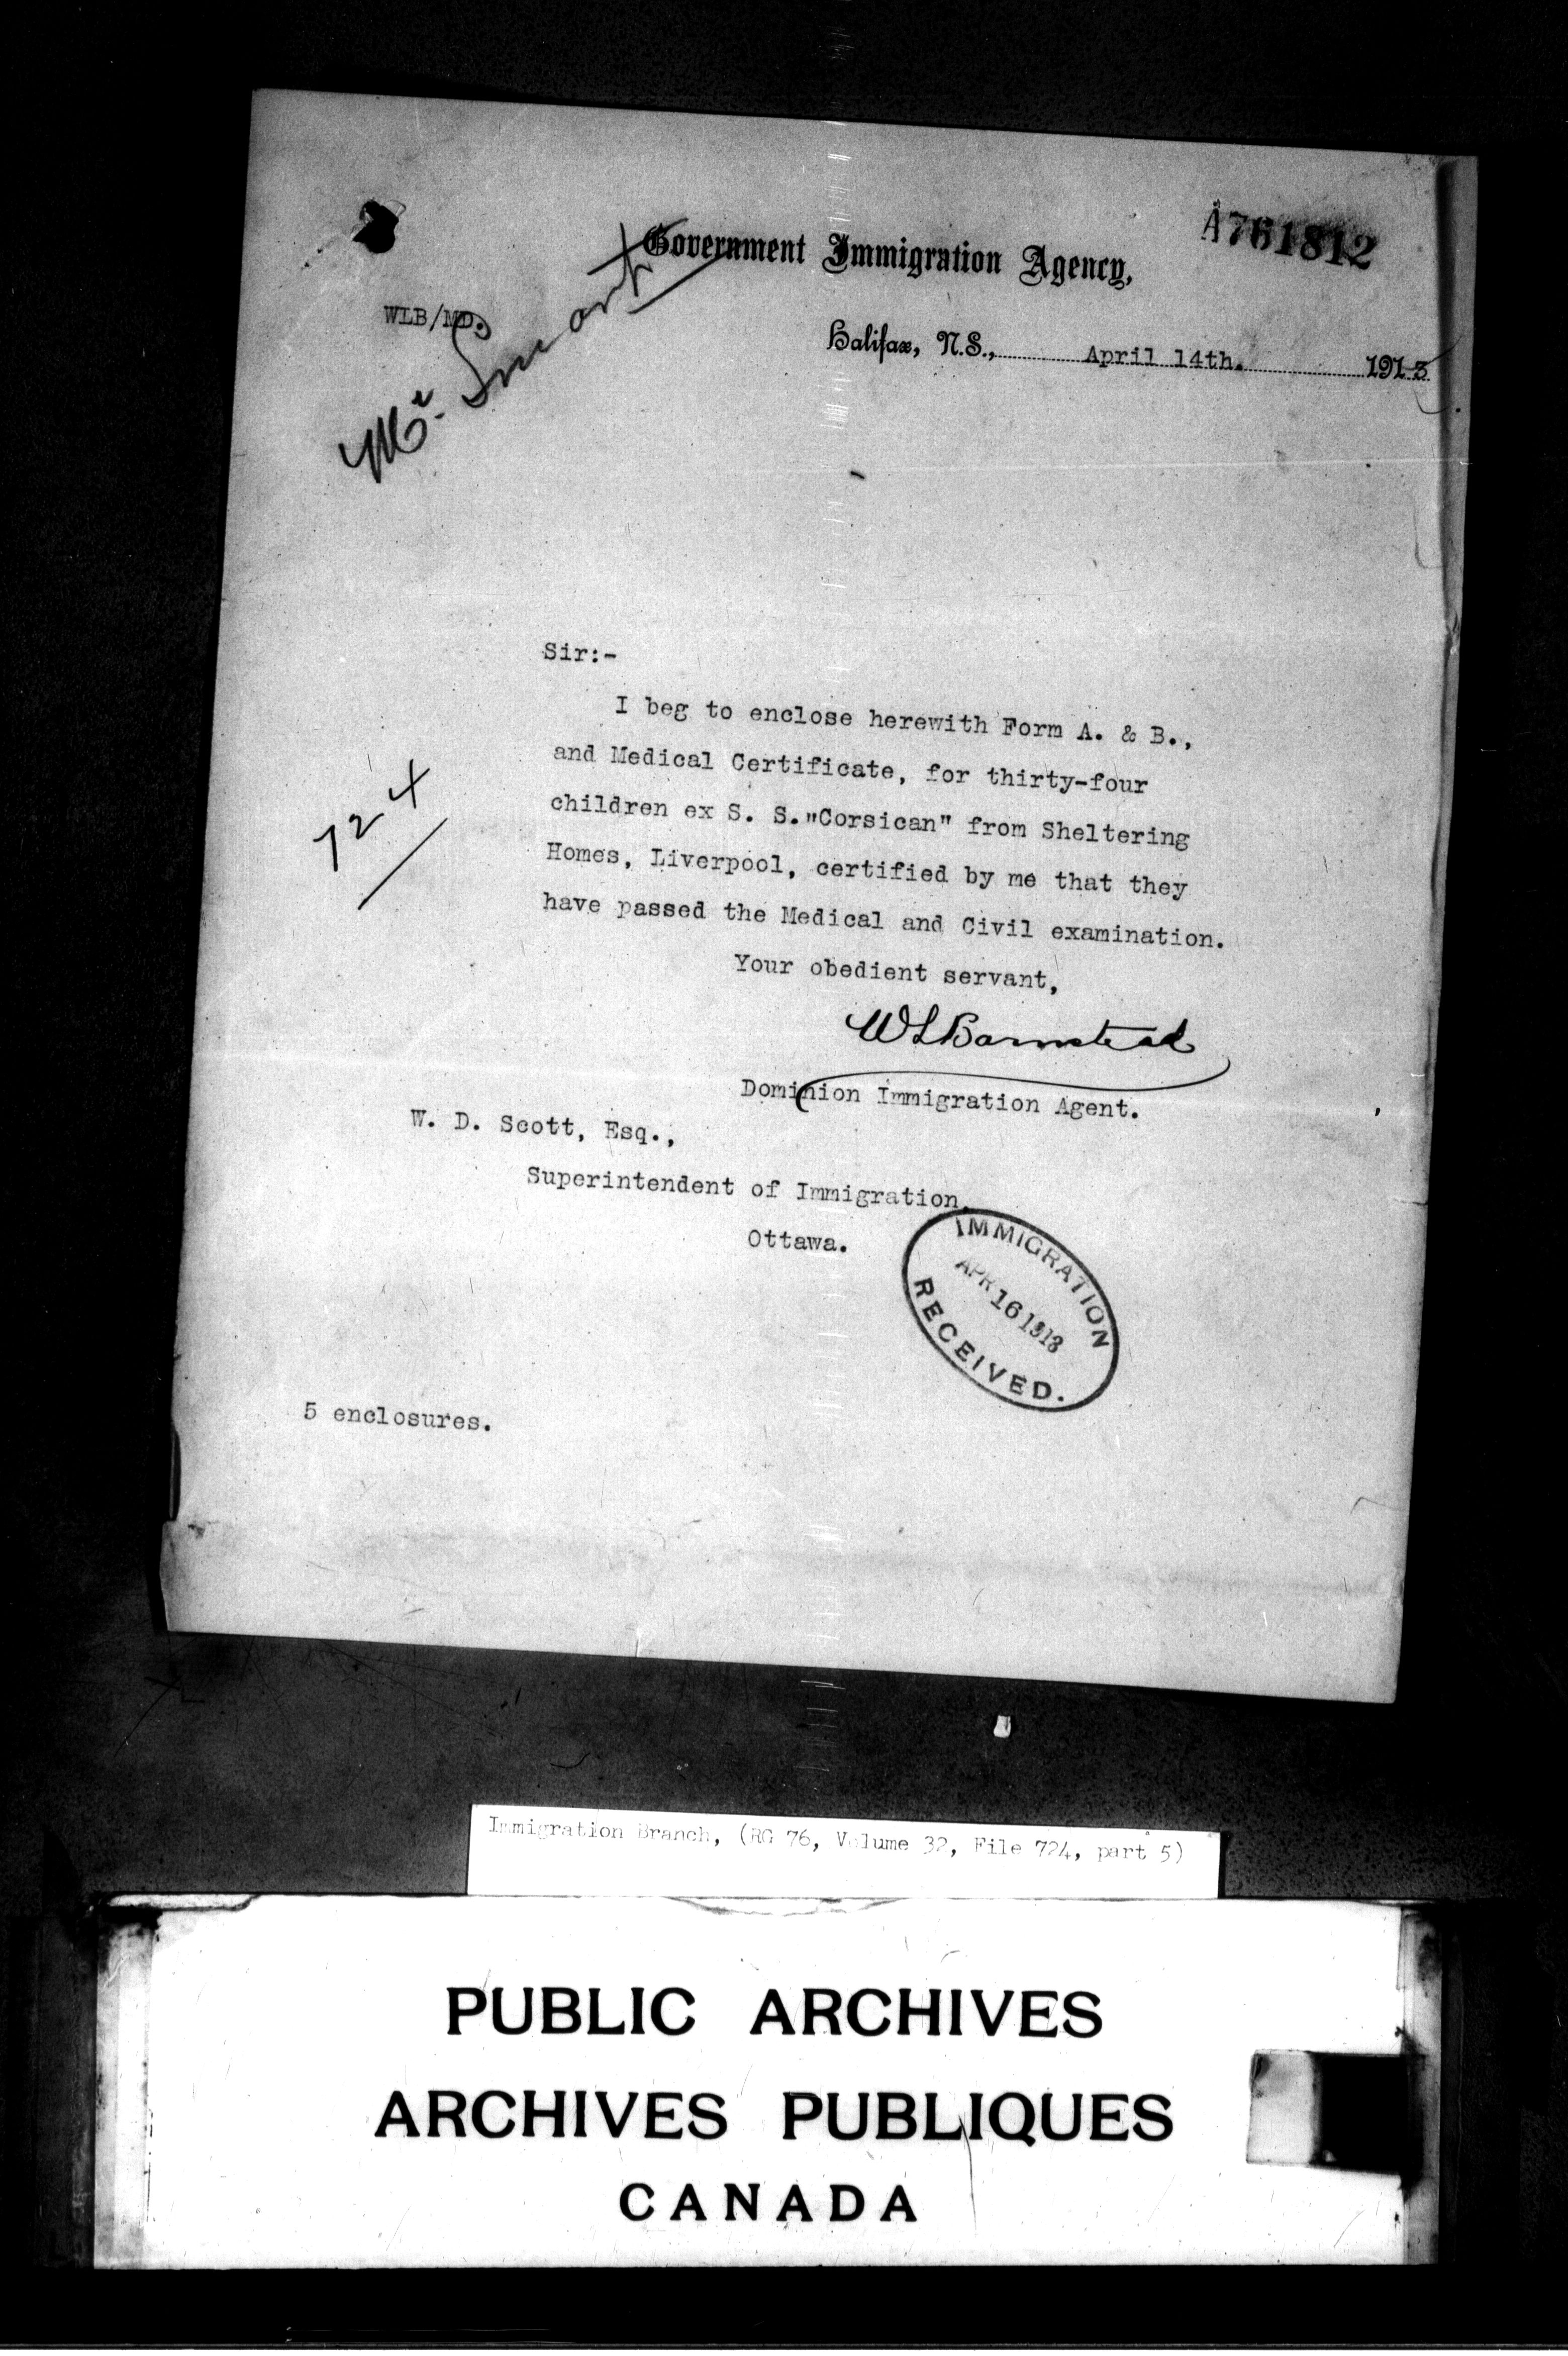 A761812
Government Immigration Agency,
WLB/MD.
Mr. Smart
Halifax, N.S., April 14th. 1913
Sir:-
I beg to enclose herewith Form A. & B.,
and Medical Certificate, for thirty-four
children ex S. S."Corsican" from Sheltering
Homes, Liverpool, certified by me that they
have passed the Medical and Civil examination.
724
Your obedient servant,
WLBarnstead
Dominion Immigration Agent.
W. D. Scott, Esq.,
Superintendent of Immigration,
Ottawa.
IMMIGRATION
APR 16 1913
RECEIVED.
5 enclosures.
Immigration Branch, (RG 76, Volume 32, File 724, part 5)
PUBLIC ARCHIVES
ARCHIVES PUBLIQUES
CANADA